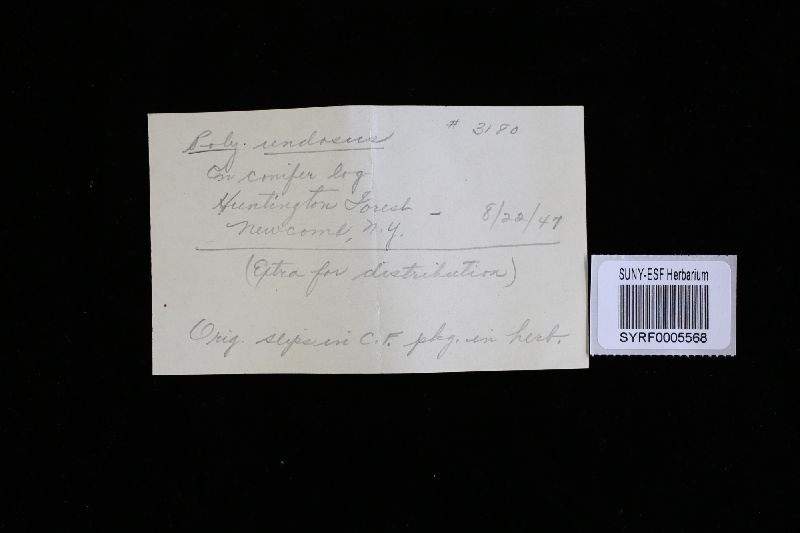 # 3180
Poly. undosus
On conifer log
Huntington Forest - 8/22/47
Newcomb, N.Y.
(Extra for distribution)
Orig. slips in C.F. pkg. in herb.
SUNY-ESF Herbarium
SYRF0005568